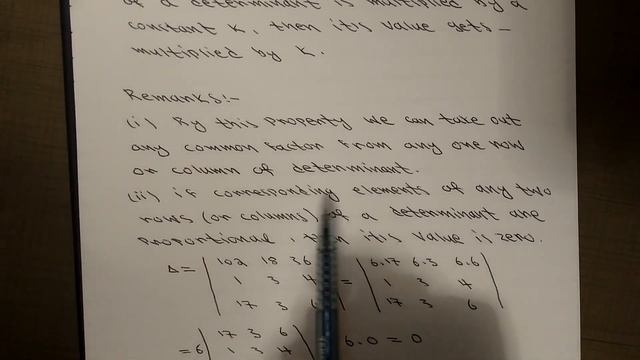 of a determinant is multiplied by a
constant K, then its value gets -
multiplied by K.
Remarks:-
(i) By this property we can take out
any common factor from any one row
or column of determinant.
(ii) if corresponding elements of any two
rows (or columns) of a determinant are
proportional, then its value is zero.
Δ = | 102 18 36 = | 6.17 6.3 6.6 |
| 1 3 | 1 3 4 |
| 17 3 6 | 17 3 6 |
= 6 | 17 3 6 | 6.0 = 0
| 1 3 4 |